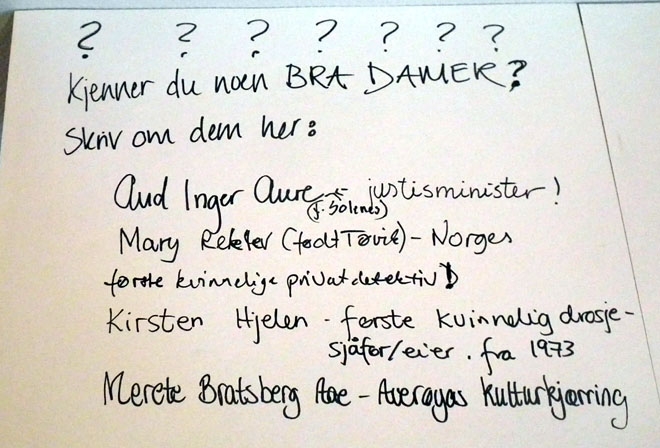 ? ? ? ? ? ? ?
Kjenner du noen BRA DAMER?
Skriv om dem her:
Aud Inger Aure - justisminister!
(f. Solenes)
Mary (født Tøvik) - Norges
første kvinnelige privatdetektiv!
Kirsten Hjelen - første kvinnelig drosje-
sjåfør/eier. fra 1973
Merete Bratsberg Aae - Averøyas Kulturkjærring